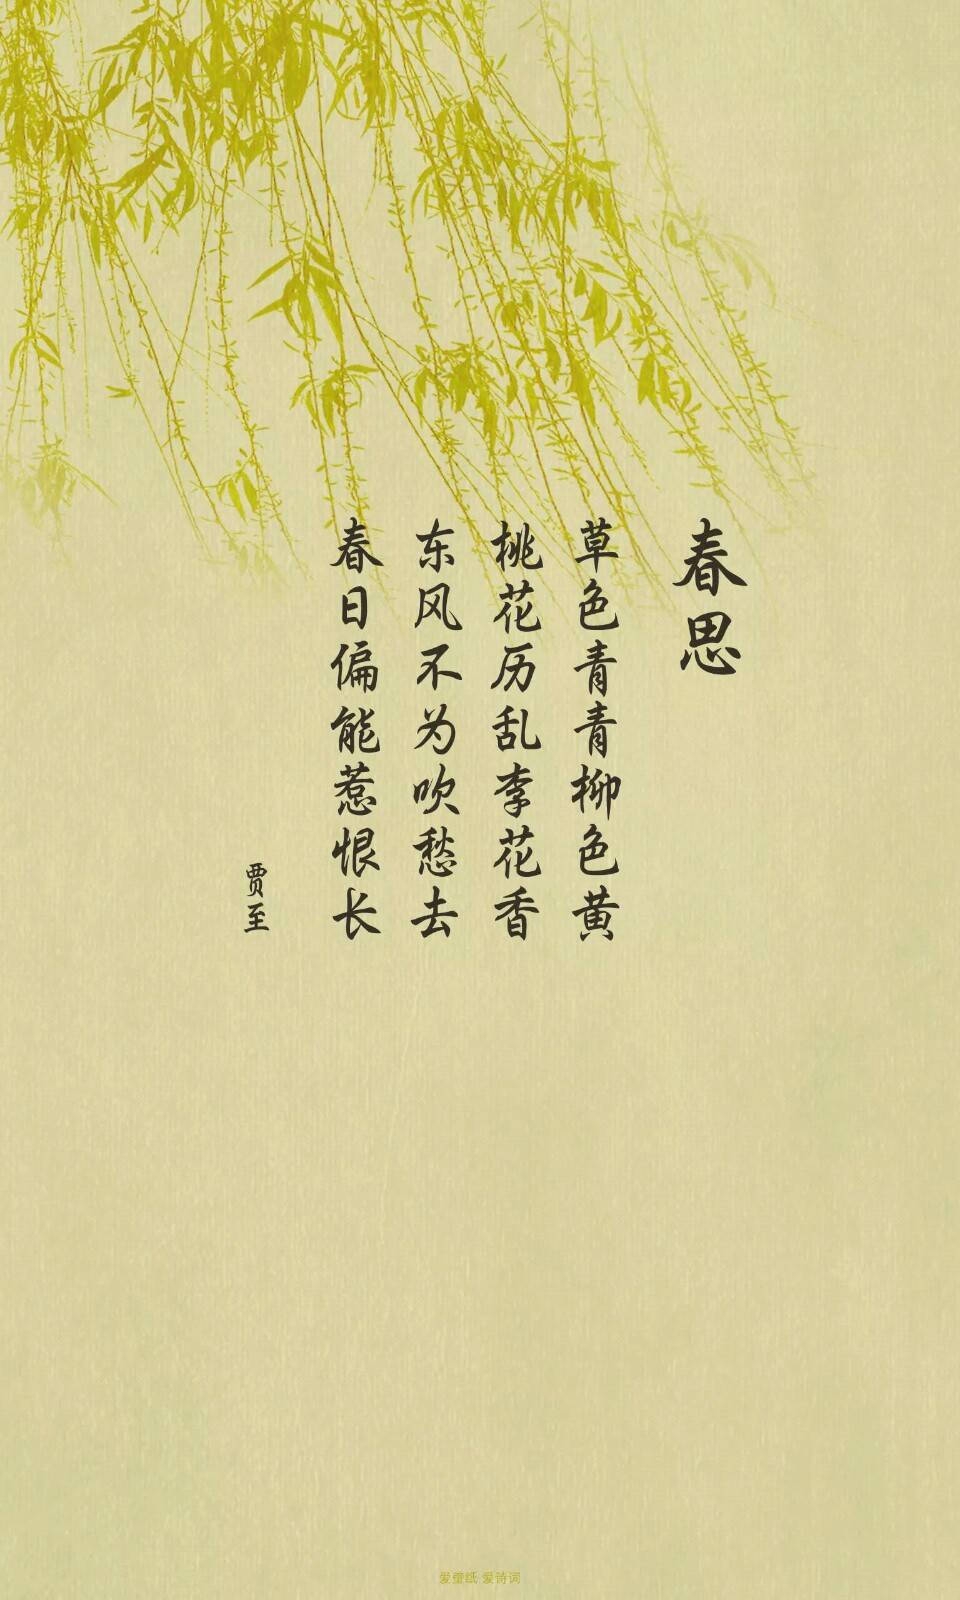 春思
草色青青柳色黄
桃花历乱李花香
东风不为吹愁去
春日偏能惹恨长
贾至
爱壁纸 爱诗词